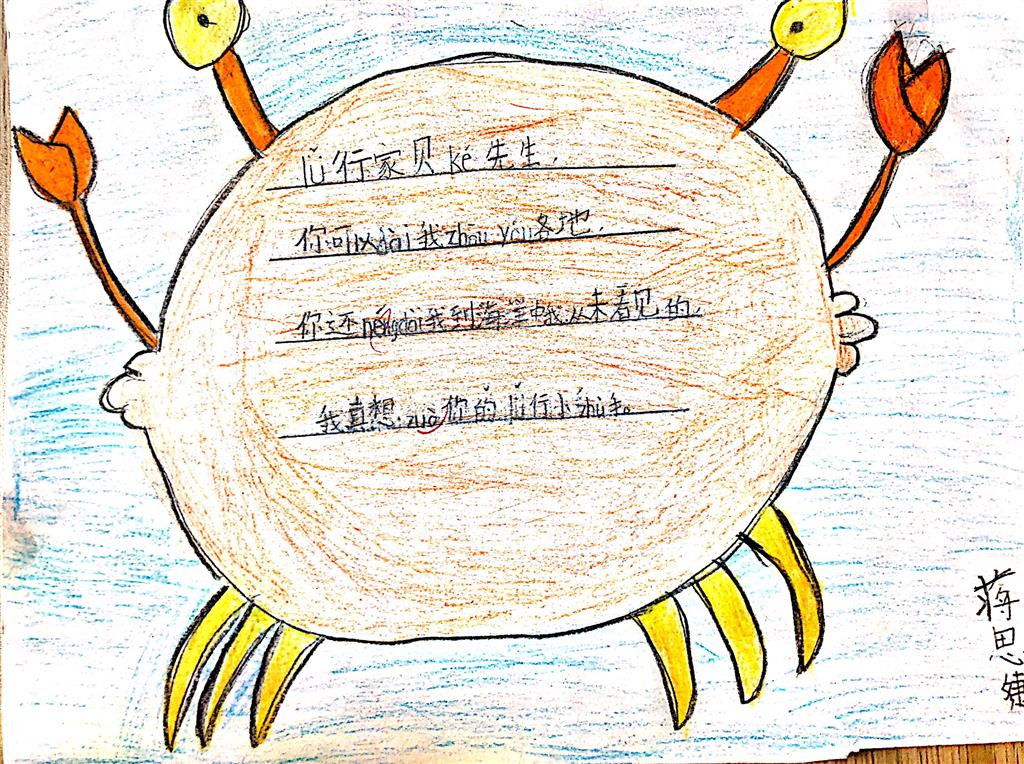 lǚ行家贝ké先生,
你可以dài我zhōu yóu各地,
你还néngdài我到海洋中我从未看见的,
我真想zuò你的lǚ行小zhù手。
蒋思婕